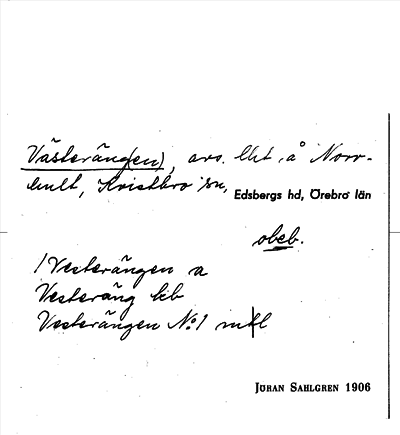 Västeräng(en), avs. lht å Norr-
hult, Kvistbro sn, Edsbergs hd, Örebro län
obeb.
/Vesterängen a
Vesteräng kb
Vesterängen No 1 mtl
JÖRAN SAHLGREN 1906